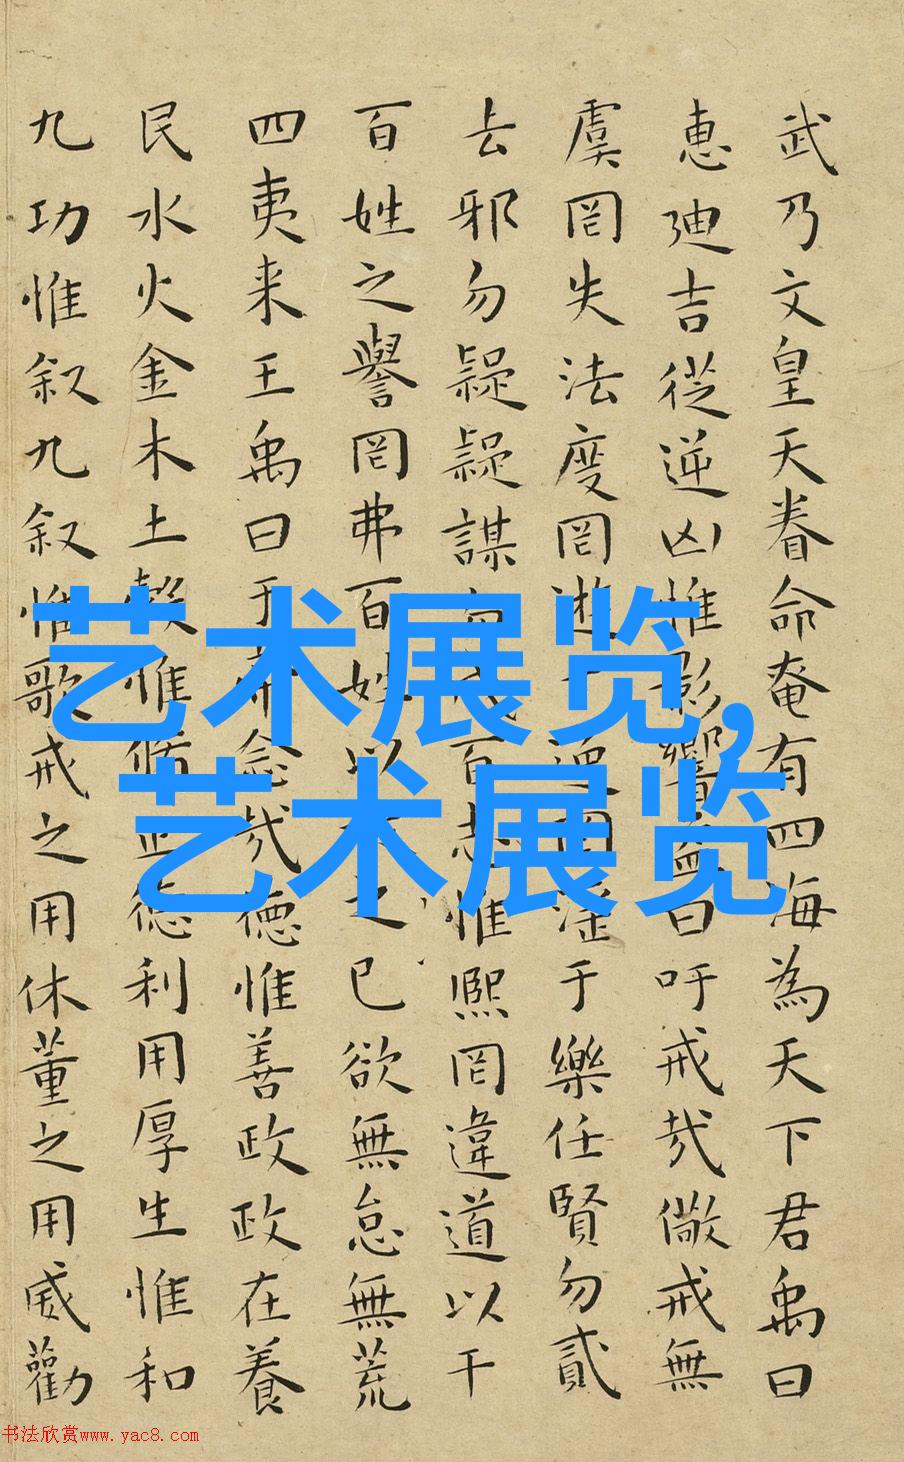 武乃文皇天眷命奄有四海為天下君禹曰
惠廸吉從逆凶惟影響益曰吁戒哉儆戒無
虞罔失法度罔遊于逸罔淫于樂任賢勿貳
去邪勿疑疑謀勿成百志惟熙罔違道以干
百姓之譽罔弗百姓以之已欲無怠無荒
四夷来王禹曰于帝念哉德惟善政政在養
民水火金木土穀惟脩正德利用厚生惟和
九功惟叙九叙惟歌戒之用休董之用威勸
艺术展览,
艺术展览
书法欣赏www.yac8.com